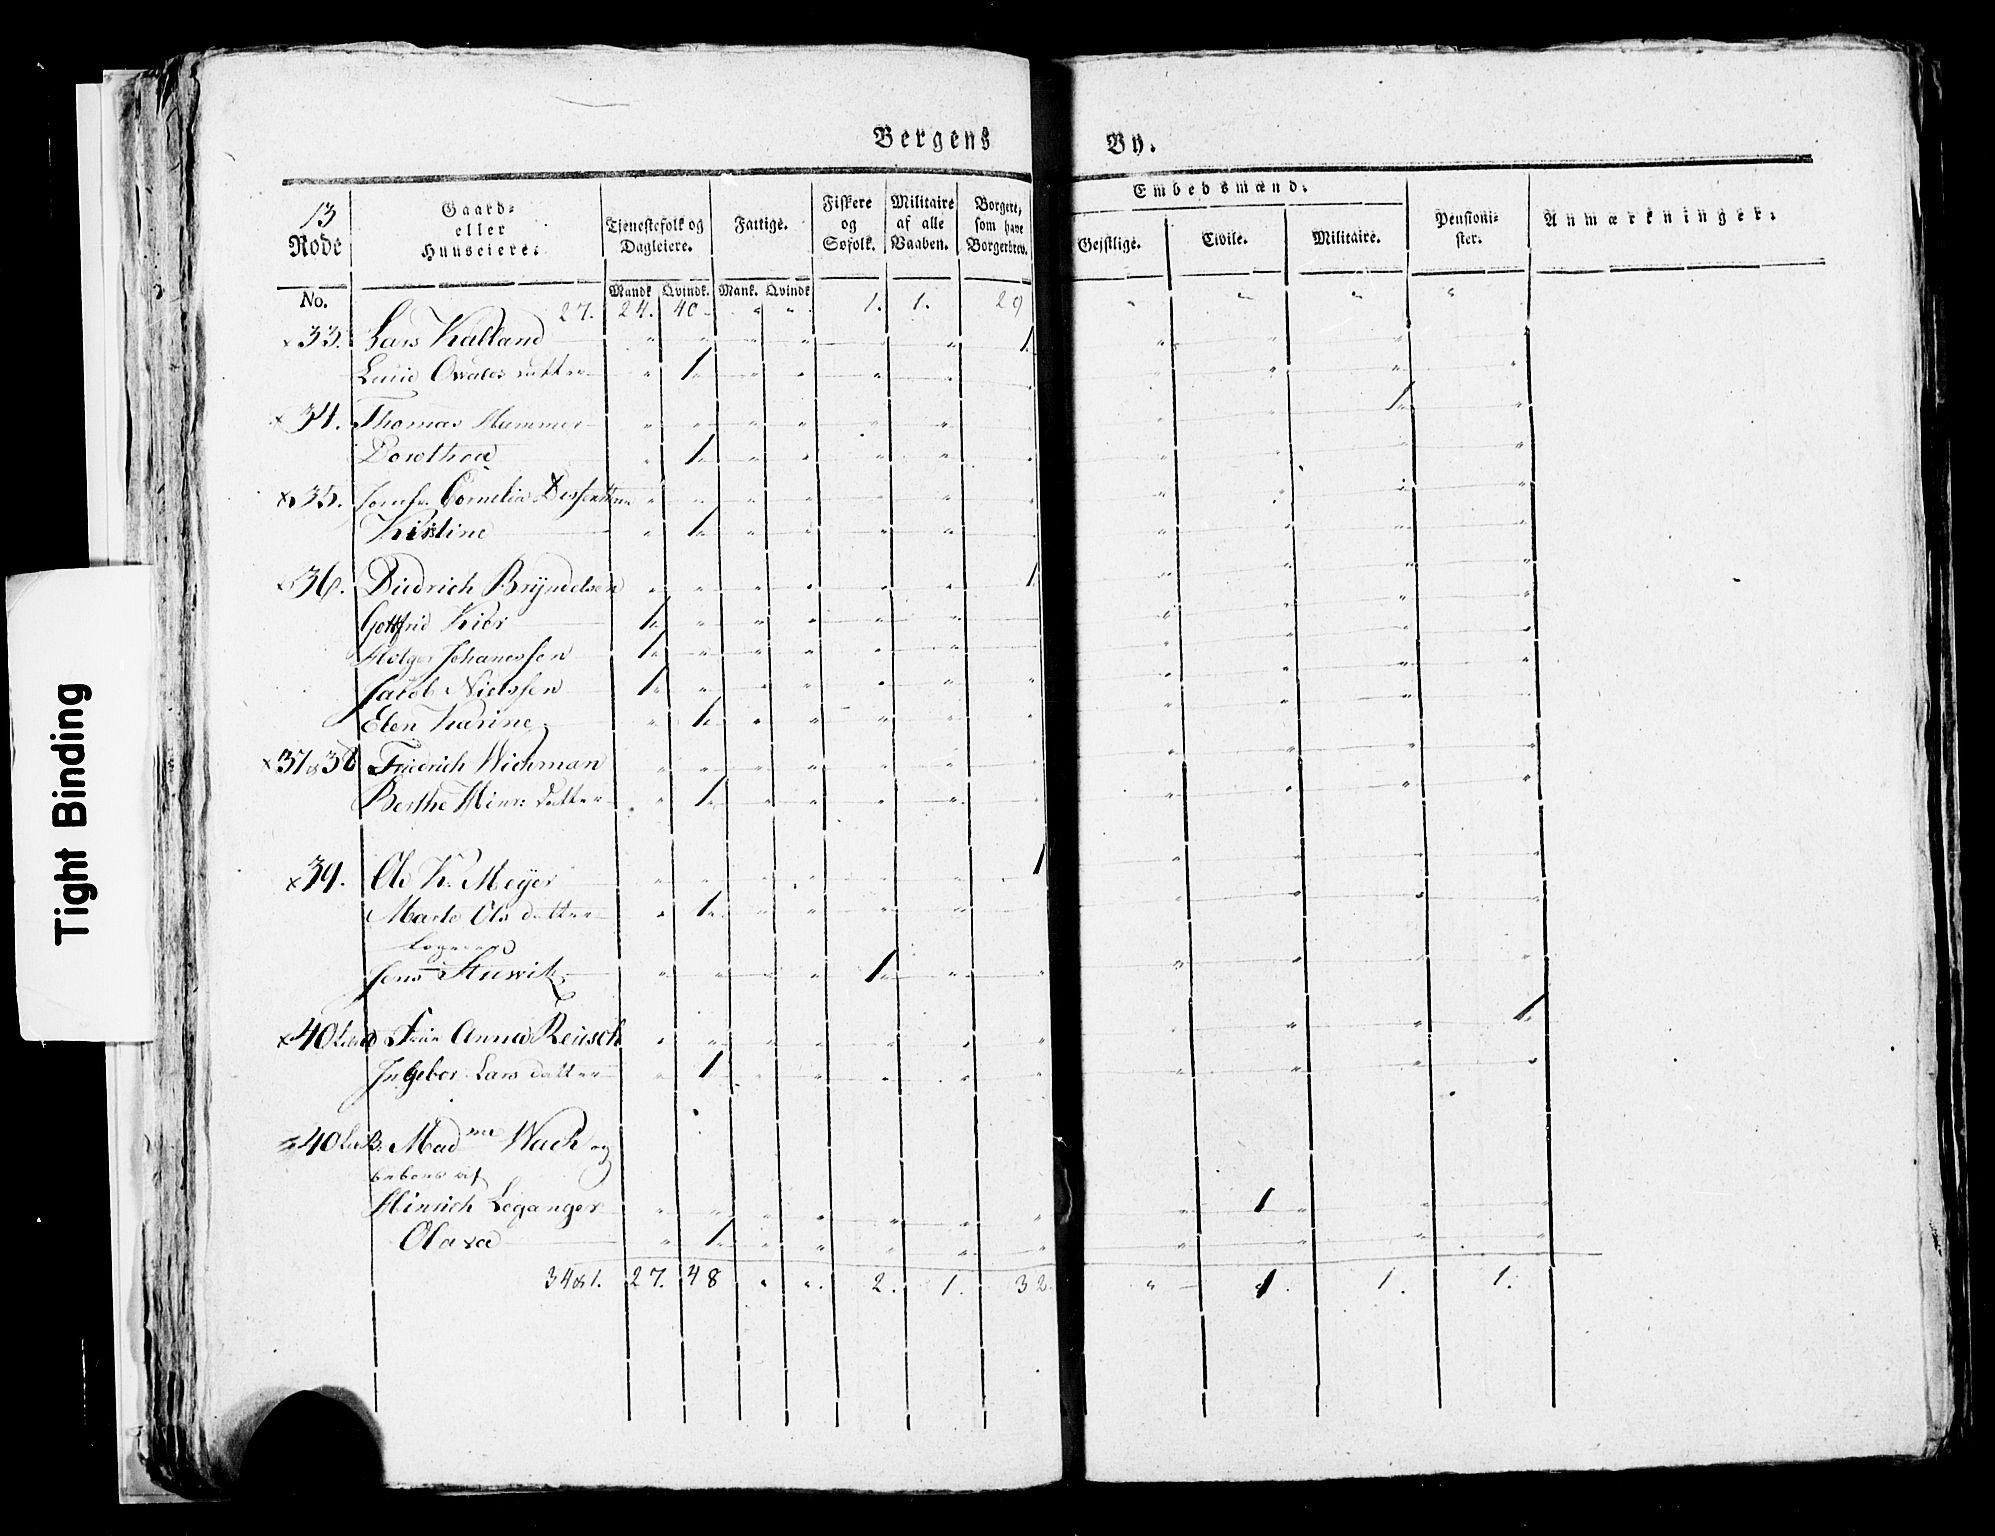 Bergens By.
13 Rode
Gaard- eller Huuseiere.
Tjenestefolk og Dagleiere.
Fattige.
Fiskere og Søfolk.
Militaire af alle Vaaben.
Borgere, som have Borgerbrev.
Embedsmænd.
Gejstlige. Civile. Militaire.
Pensionister.
Anmærkninger.
No. Mandk Qvindk. Mank. Qvindk
27. 24. 40 " " 1. 1. 29 " " " "
33. Lars Kalland 1
datter 1
34. Thomas Hammer 1
Dorothea 1
35. Jomfr. Cornelia
Kistine 1
36. Diedrich Bryndelsen 1
Gottfrid Kier 1
Holger Johanessen 1
Jacob Nielssen 1
Elen Karine 1
37 & 38 Friedrich Wichman
Berthe Hinr: datter 1
39. Ole K. Meyer 1
Marte Ols datter 1
Logerend
Jens Stuwik 1
40 Frue Anna Reusch 1
Ingebor Lars datter 1
40 B. Mad me Wach og
beboes af
Hinrich Leganger 1
Olava 1
34 & 1. 27. 48 " " 2. 1. 32. " 1. 1. 1.
Tight Binding